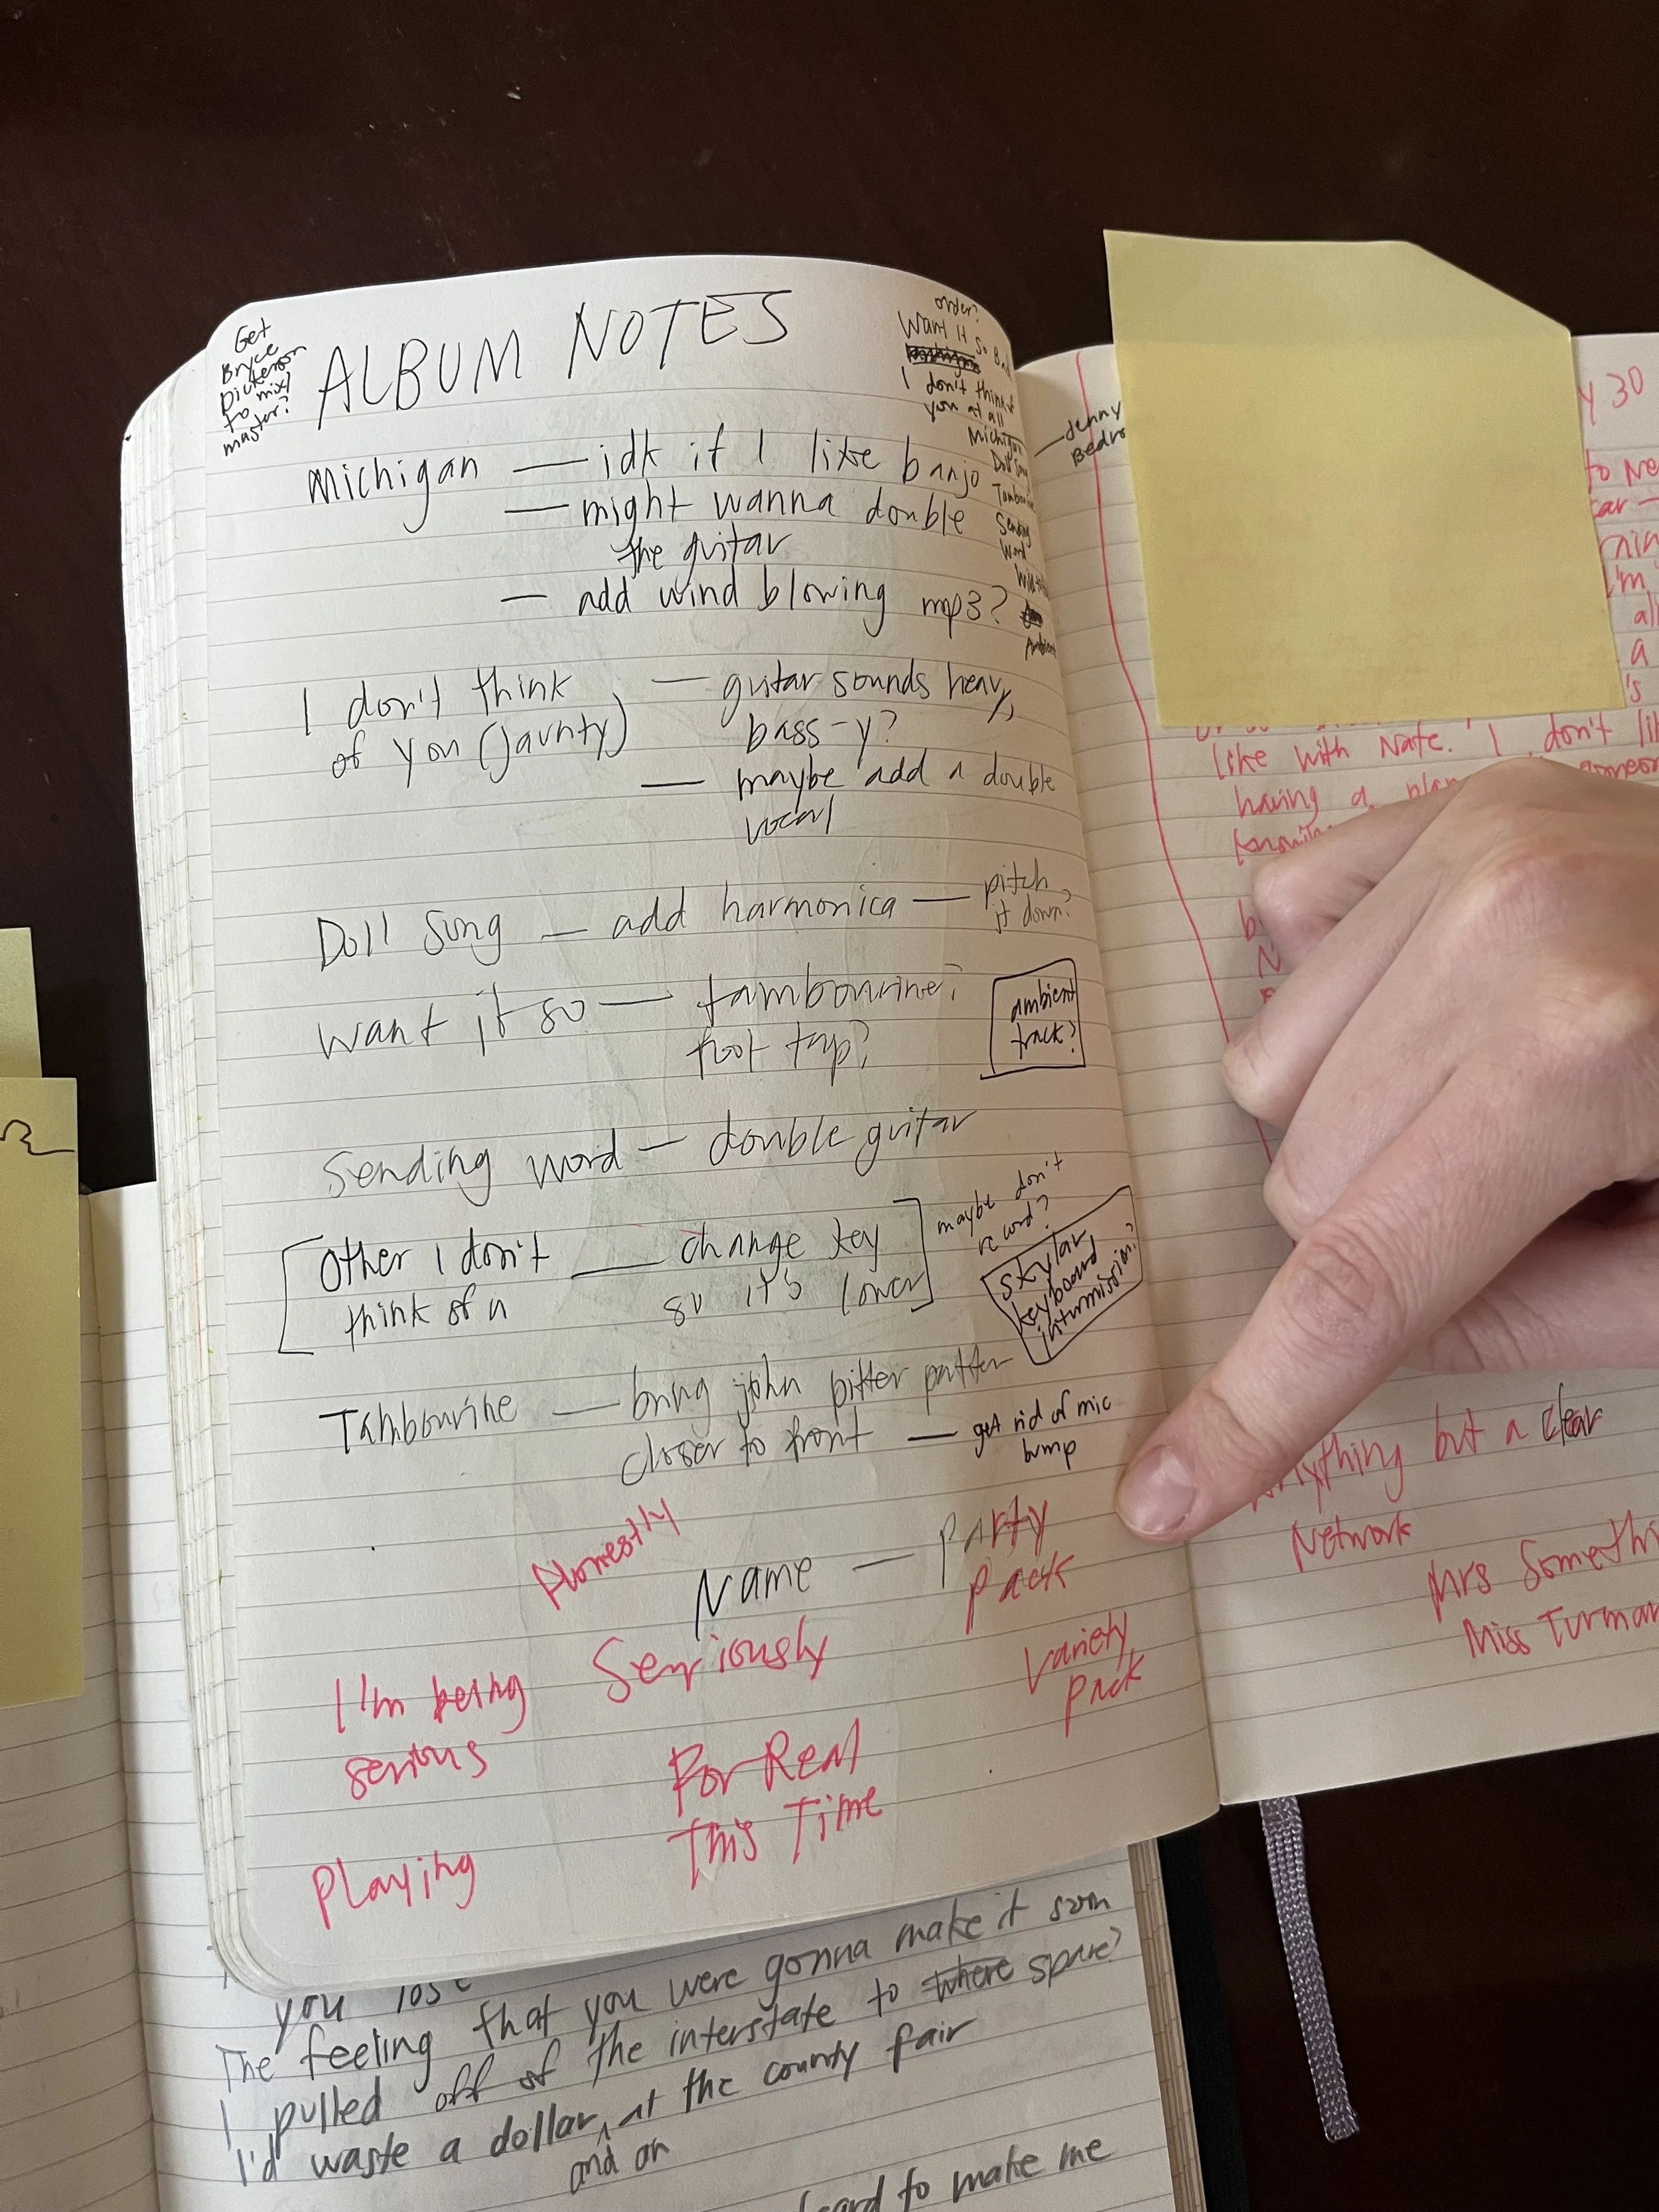 Get
Bryce
Dickerson
to mix/
master?
ALBUM NOTES
order?
Want It So Bad
I don't think
you at all
Michigan
Doll Song
Tambourine
Sending
Word
Ambient
Jenny
Michigan — idk if I like banjo
— might wanna double
the guitar
— add wind blowing mp3?
I don't think
of you (jaunty)
— guitar sounds heavy,
bass-y?
— maybe add a double
vocal
Doll Song — add harmonica — pitch
it down?
Want it so — tambourine?
foot tap?
ambient
track?
Sending word — double guitar
[Other I don't
think of u
— change key
so it's lower]
maybe don't
record?
Skylar
keyboard
intermission?
Tambourine — bring john pitter patter
closer to front — get rid of mic
bump
Honestly
Name — Party
Pack
Seriously
Variety
Pack
I'm being
serious
For Real
This Time
Playing
Y 30
to
a
's
like with Nate. I don't
having a
Anything but a clear
Network
Mrs
Miss
you lose
The feeling that you were gonna make it
I pulled off of the interstate to where spare?
I'd waste a dollar, at the county fair
and on
to make me